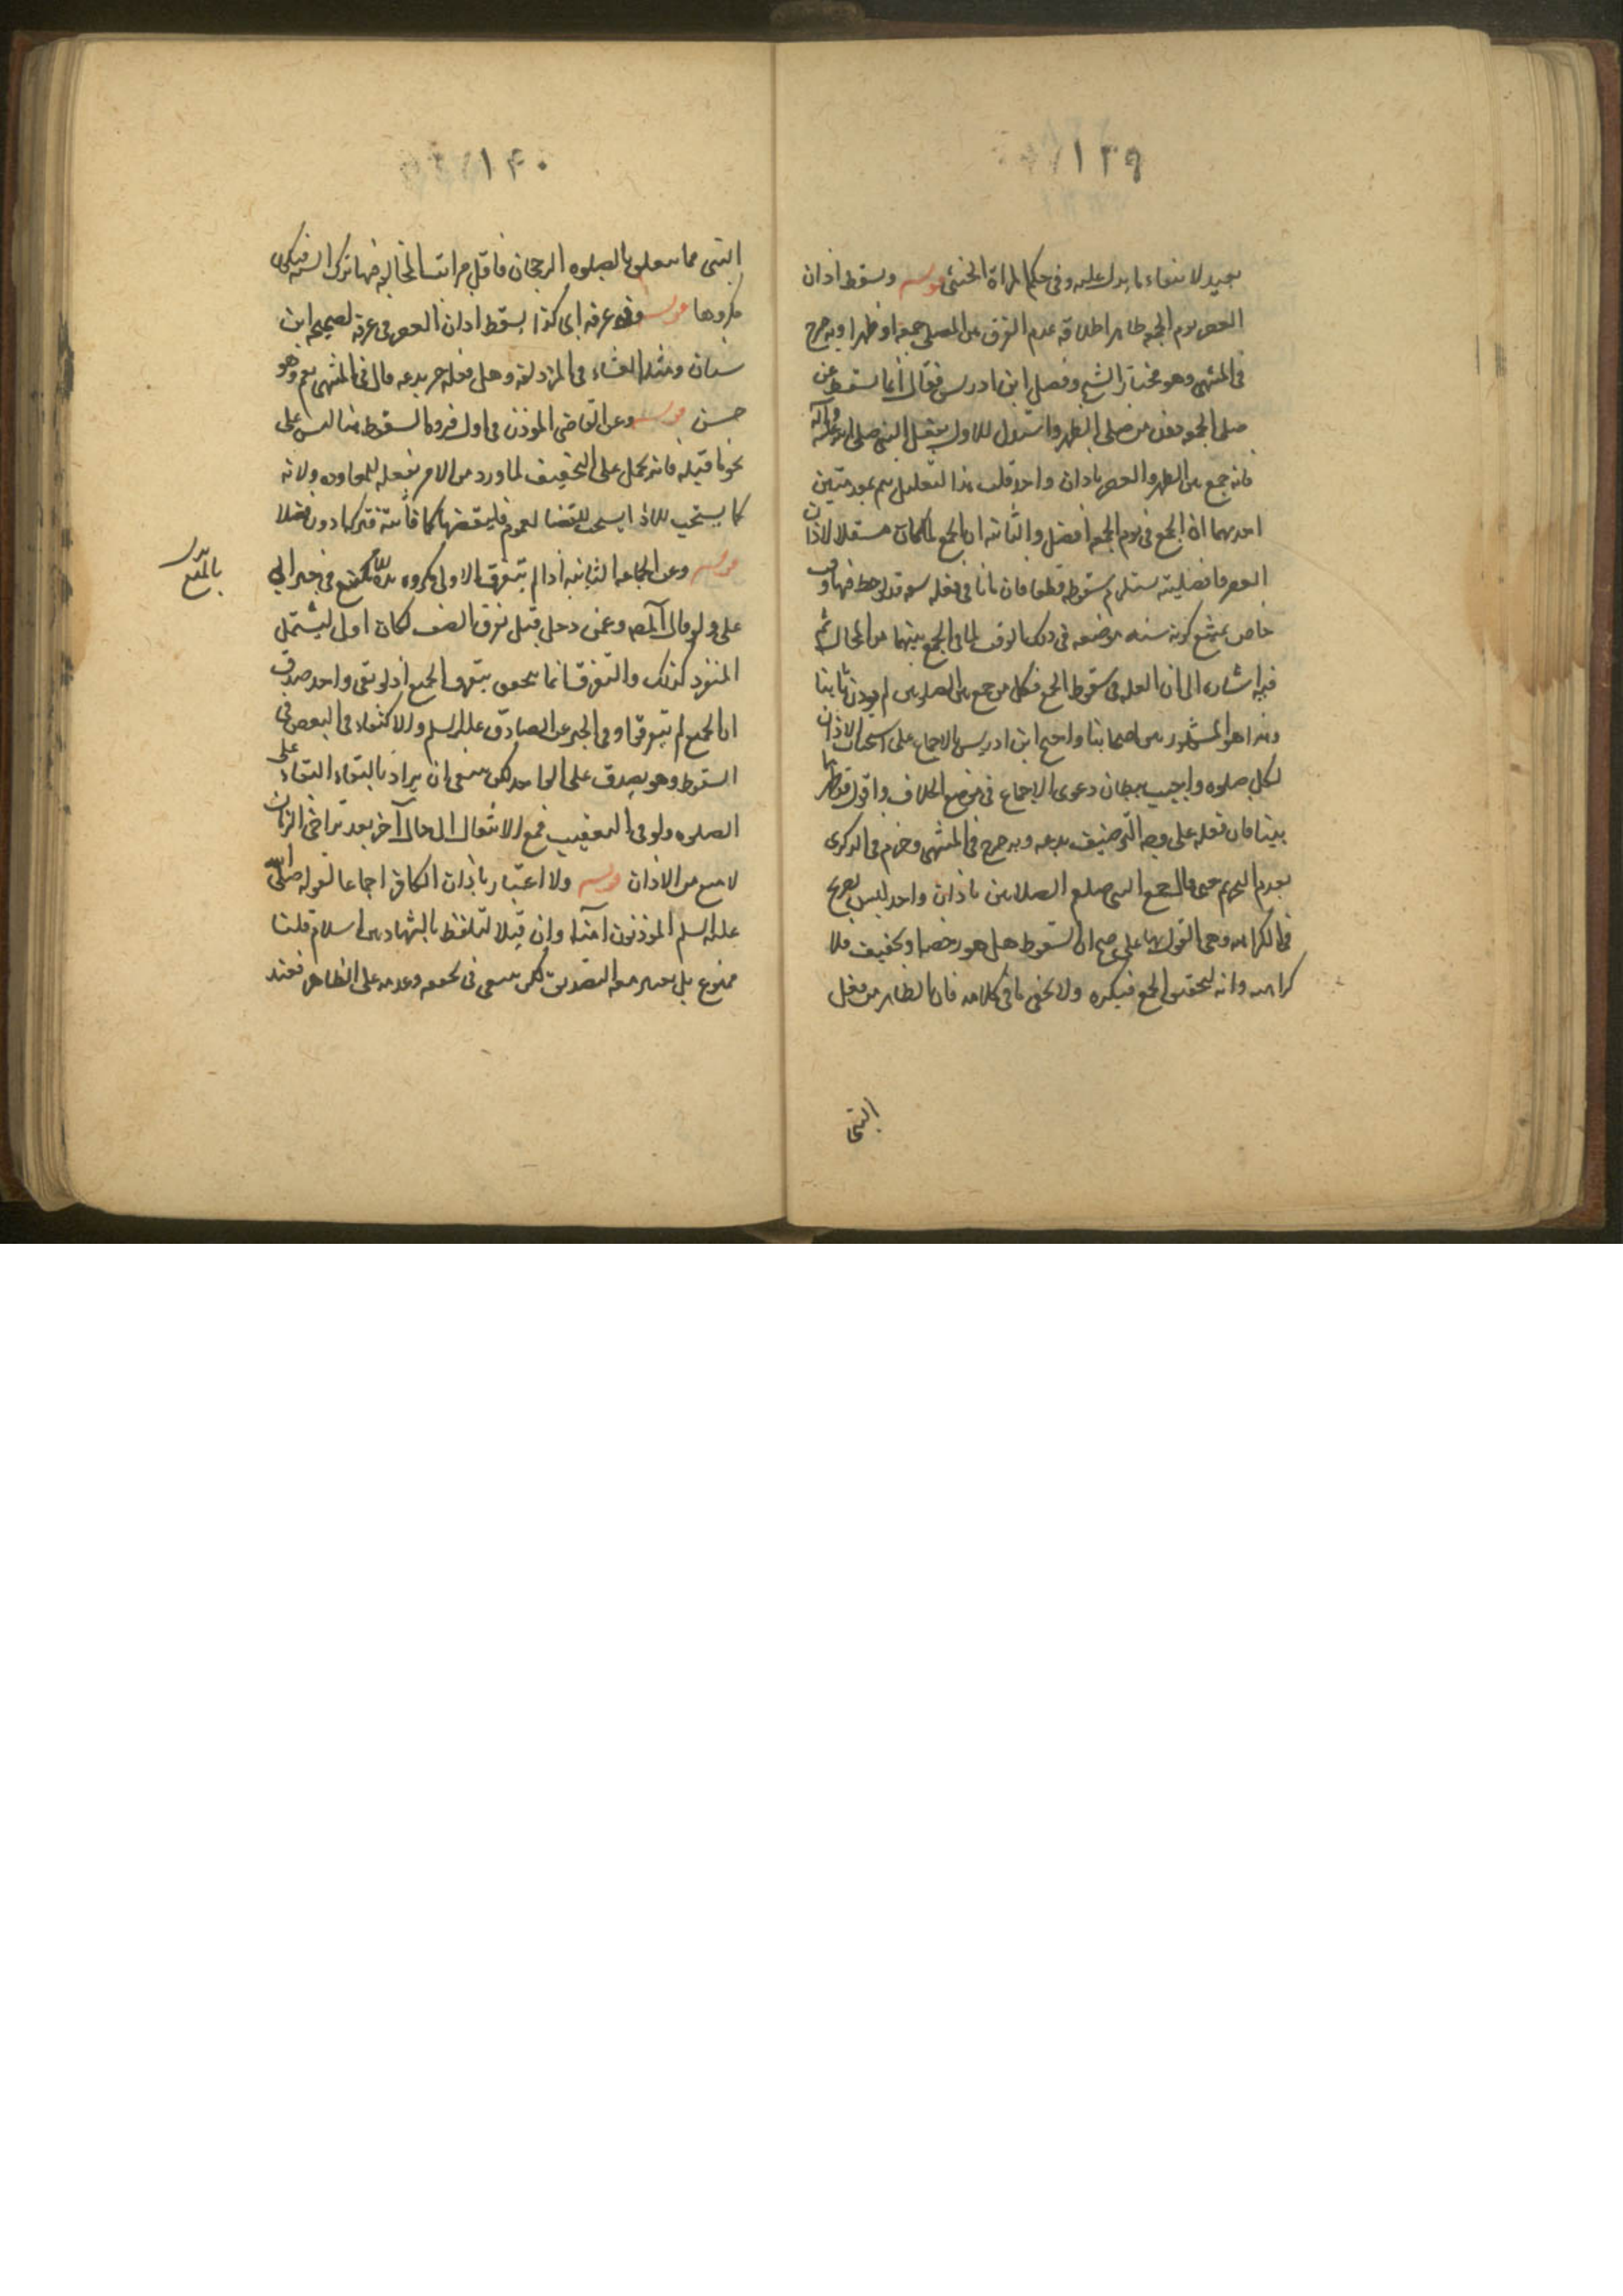 ١٣٩
بعيد لانتفاء ما يدل عليه وفى حكم المراة الخنثى قوله وسقط اذان
العصر يوم الجمعه ظاهر اطلاقه عدم الفرق بين المصلى جمعة او ظهرا وبه صرح
فى المنتهى وهو مختار الشيخ وفصل ابن ادريس فقال انما يسقط عن
مصلى الجمعه دون من صلى الظهر واستدل للاول بفعل النبى صلى الله عليه وآله
فانه جمع بين الظهر والعصر باذان واحد قلت هذا التعليل يتم بمقدمتين
احديهما ان الجمع فى يوم الجمعه افضل والثانيه ان الجمع
العصر فافضليته يستلزم سقوطه قطعا فان
خاص يمتنع كونه سنه موضعه فى ذلك الوقت لما فى الجمع بينهما من المحال ثم
فيه اشاره الى ان العله فى سقوط الجمع فكل من جمع بين الصلوتين لم يوذن ثانيا
وهذا هو المشهور بين اصحابنا واحتج ابن ادريس بالاجماع على استحباب الاذان
لكل صلوه واجيب ببطلان دعوى الاجماع فى موضع الخلاف واقول
بينا فان فعله على وجه التوظيف بدعه وبه صرح فى المنتهى وجزم فى الذكرى
بعدم التحريم حتى قال جمع النبى صلعم الصلاتين باذان واحد ليس بصريح
فى الكراهه وهى القول بها على ان السقوط هل هو رخصه وتخفيف فلا
كراهه وانه لتحقق الجمع فيكره ولا يخفى ما فى كلامه فان الظاهر من فعل
النبى
١٤٠
النبى مما يتعلق بالصلوه الرجحان فاقل مراتب المخالفه فيها ترك السنه فيكون
مكروها قوله وفى عرفه اى كذا يسقط اذان العصر فى عرفه لصحيحه ابن
سنان ومثله العشاء فى المزدلفه وهل فعله ح بدعه قال فى المنتهى نعم وهو
حسن قوله وعن القاضى الموذن فى اول فروه السقوط هنا ليس على
نحو ما قبله فانه يحمل على التخفيف لما ورد من الامر بفعله للمعاوده ولانه
كما يستحب للاداء يستحب للقضاء لعموم فليقضها كما فاتته فتركها دون فضلا
قوله وعن الجماعه الثانيه اذا لم يتفرق الاولى مكروه بل فى خبر ابى
بالمنع
على ولو قال المصنف وعمن دخل قبل تفرق الصف لكان اولى ليشتمل
المنفرد كذلك والتفرق انما يتحقق بتفرق الجميع اذ لو بقى واحد صدق
ان الجميع لم يتفرقوا وفى الخبر عن الصادق عليه السلم والاكتفاء فى البعض فى
السقوط وهو يصدق على الواحد لكن ينبغى ان يراد بالبقاء البقاء على
الصلوه ولو فى التعقيب فمع الانتقال الى حال آخر بعد تراخى الزمان
لا منع من الاذان قوله ولا اعتبار باذان الكافر اجماعا لقوله صلى الله
عليه السلم الموذنون امناء وان قيل التلفظ بالشهادتين اسلام قلنا
ممنوع بل يعتبر معه التصديق لكن ينبغى فى تحققه وعدمه على الظاهر فعند